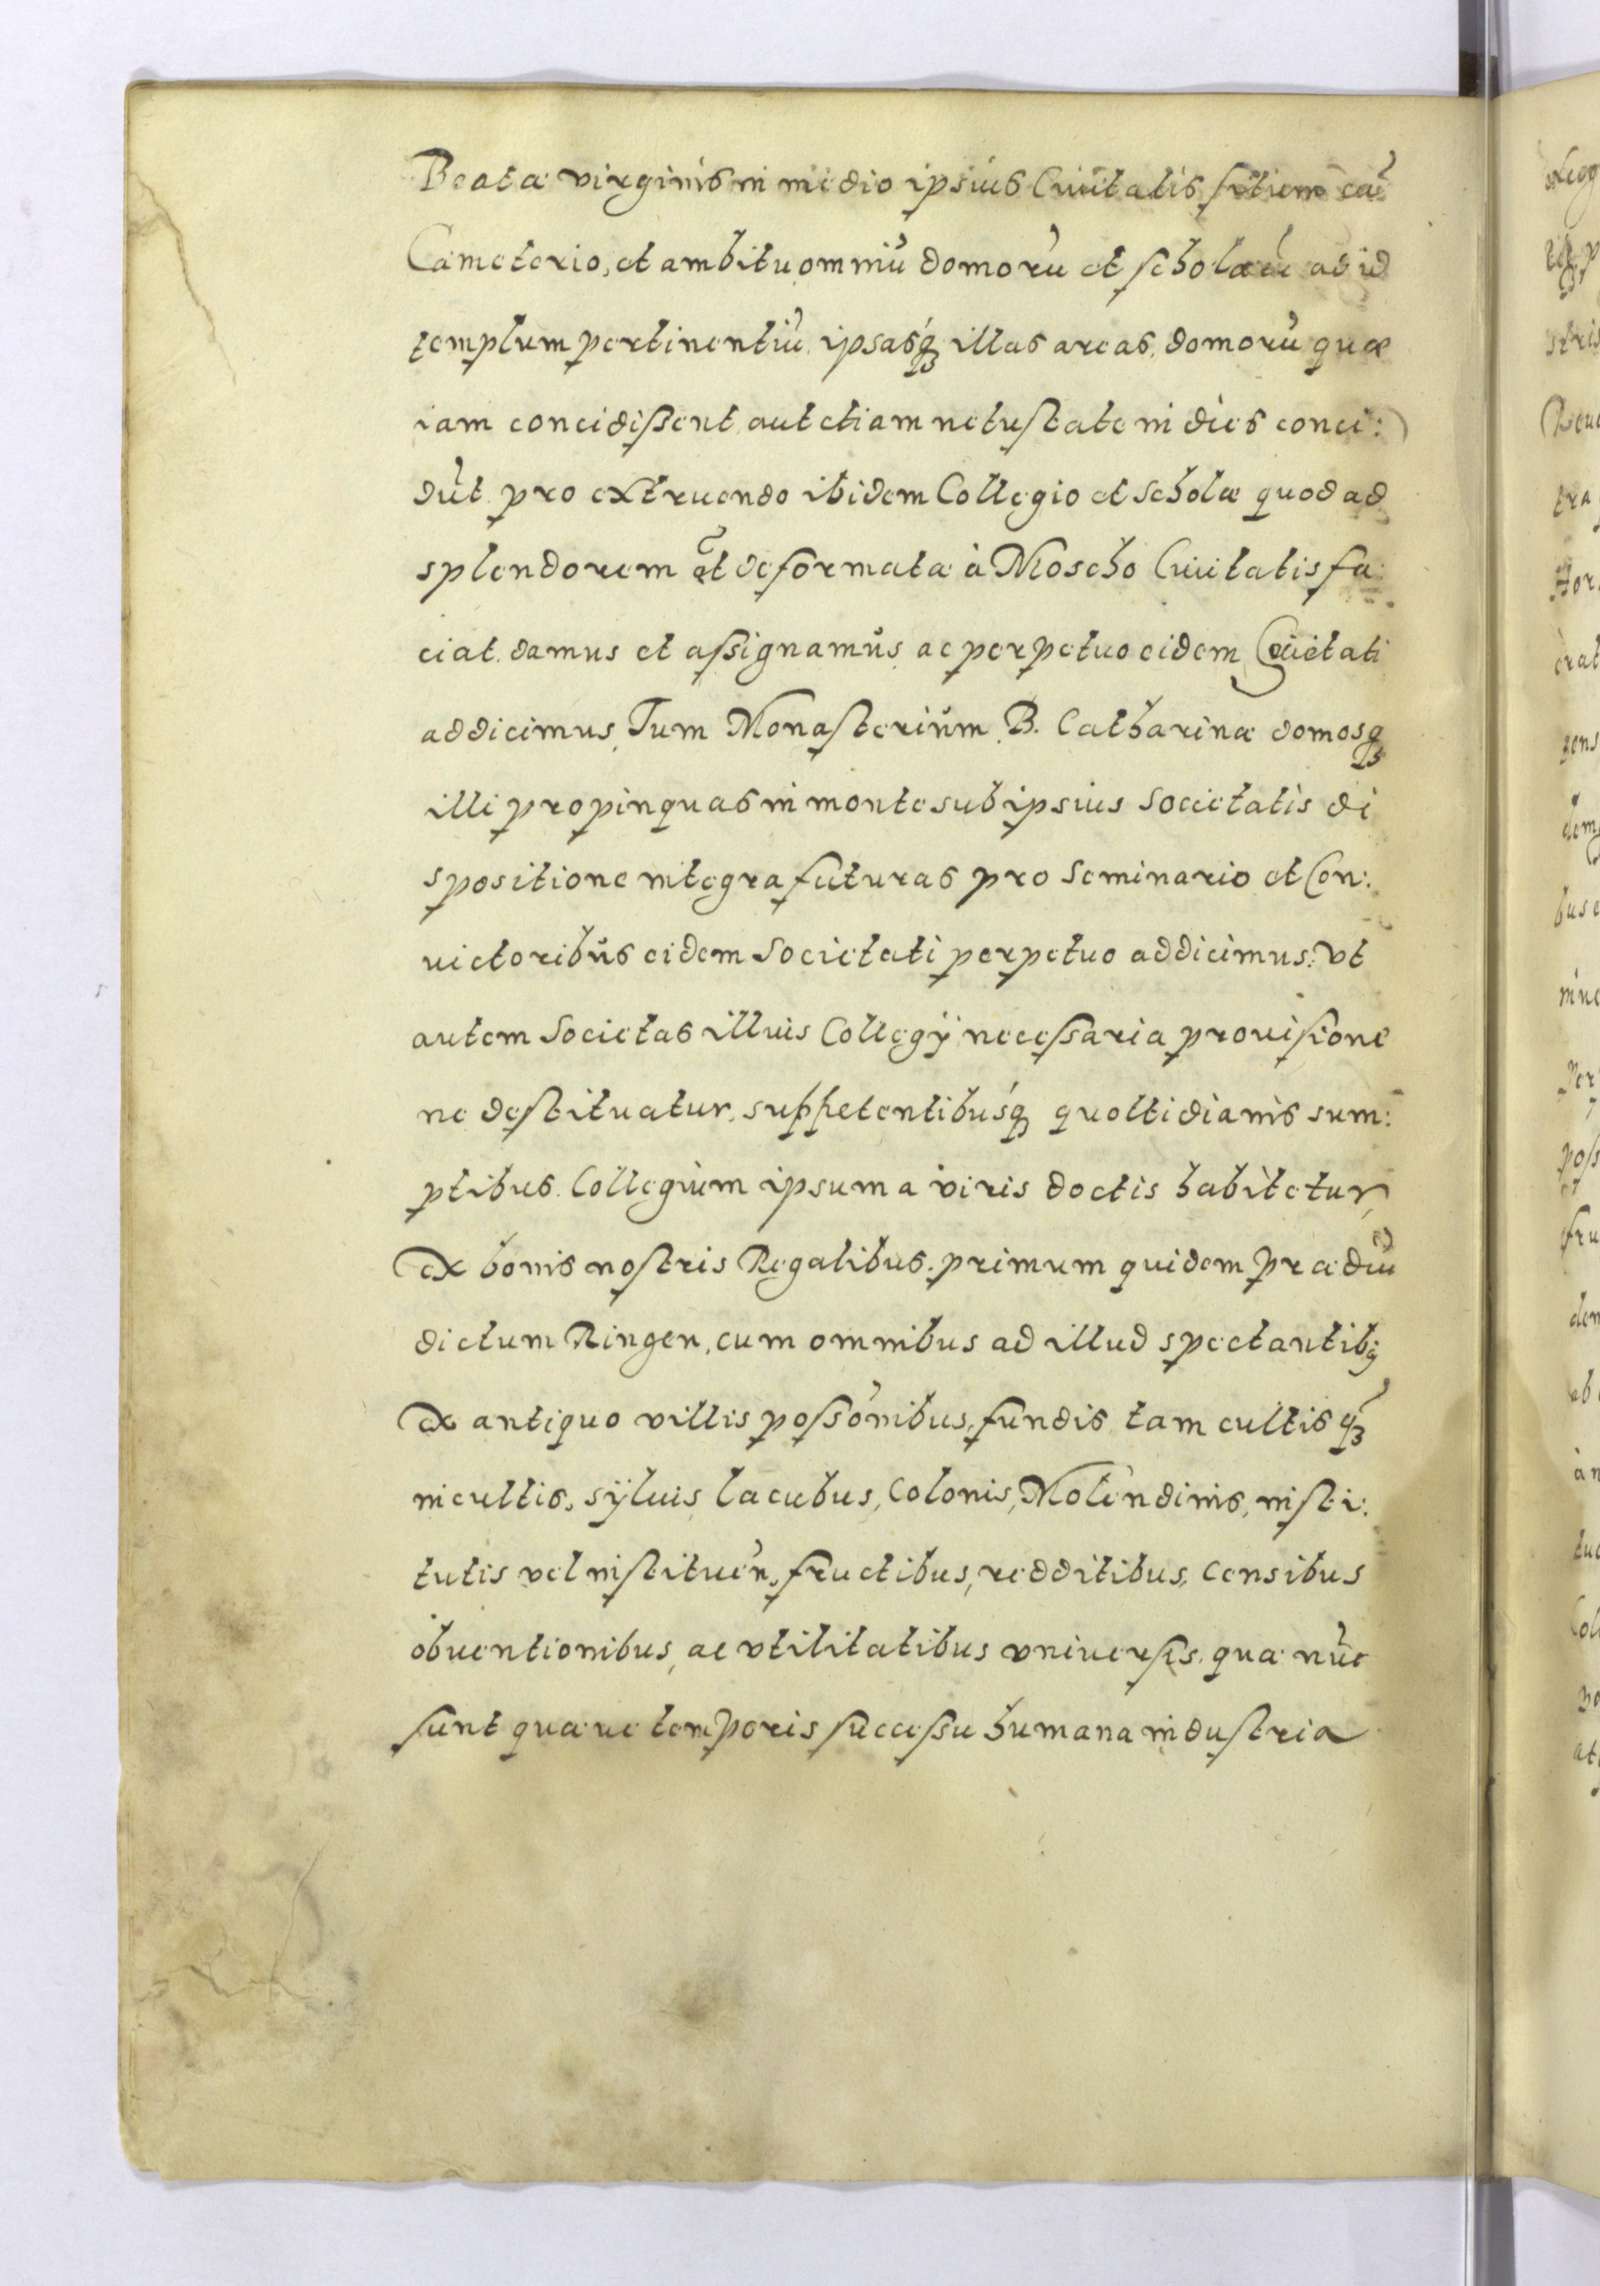 Beatæ virginis in medio ipsius Ciuitatis situm cũ
Cæmeterio, et ambitu omniũ domorũ et scholarũ ad id
templum pertinentiũ, ipsasq́ʒ illas areas, domorũ quæ
iam concidissent, aut etiam uetustate in dies conci:
dũt pro extruendo ibidem Collegio et Scholæ quod ad
splendorem et deformatæ à Moscho Ciuitatis fa:
ciat. damus et assignamus, ac perpetuo eidem Societati
addicimus, Tum Monasterium B. Catharinæ domosqʒ
illi propinquas in monte sub ipsius Societatis di
spositione integra futuras pro Seminario et Con:
uictoribus eidem Societati perpetuo addicimus: Vt
autem Societas illius Collegÿ necessaria prouisione
ne destituatur, suppetentibusq́ quottidianis sum:
ptibus Collegium ipsum a viris doctis habitetur,
ex bonis nostris Regalibus. primum quidem prædiũ
dictum Ringen, cum omnibus ad illud spectantibꝫ
ex antiquo villis possõnibus, fundis tam cultis q̃ʒ
incultis, sÿluis, lacubus, Colonis, Molendinis, insti:
tutis vel instituen̄, fructibus, redditibus, Censibus
obuentionibus, ac vtilitatibus vniuersis, quæ nũc
sunt quæue temporis successu humana industria